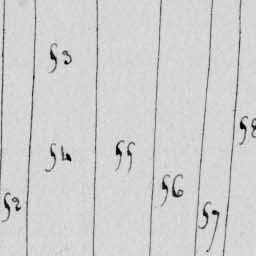 53
58
54
55
56
52
57